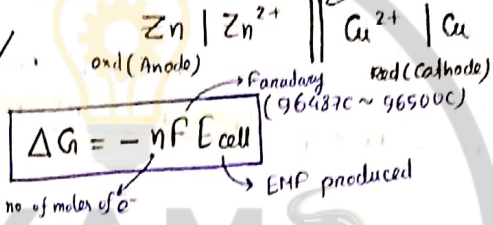 Zn | Zn²⁺ || Cu²⁺ | Cu
oxd (Anode) Red (Cathode)
Faraday
(96487C ~ 96500C)
ΔG = - nF Ecell
EMF produced
no of moles of e⁻